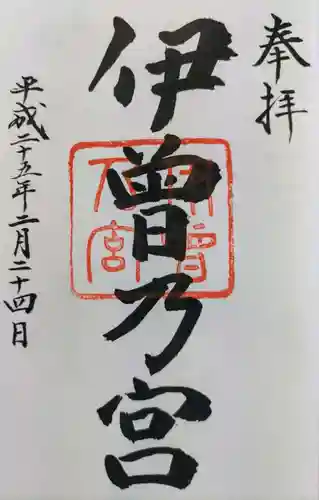 奉拝
伊曽乃宮
平成二十五年二月二十四日